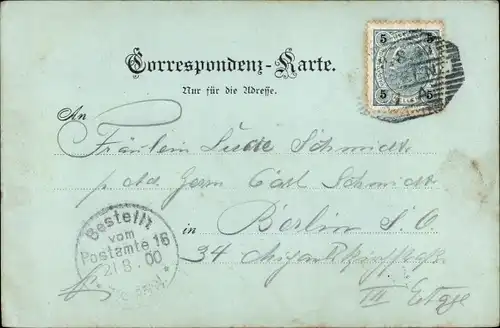 5 5
5 5
Correspondenz-Karte.
Nur für die Adresse.
An
Fräulein Lucie Schmidt
p. ad. Herrn Carl Schmidt
in Berlin S. O.
34
III Etage
Bestellt
vom
Postamte 16
21.8.00